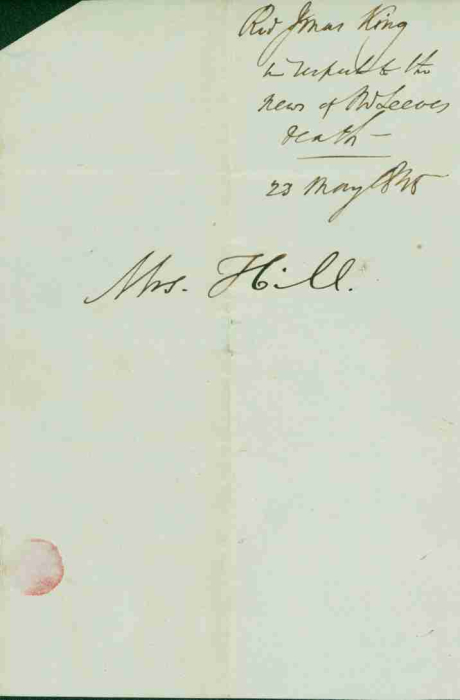 Revd Jonas King
in respect to the
news of Mr Leeves
death —
23 May 1845
Mrs. Hill.